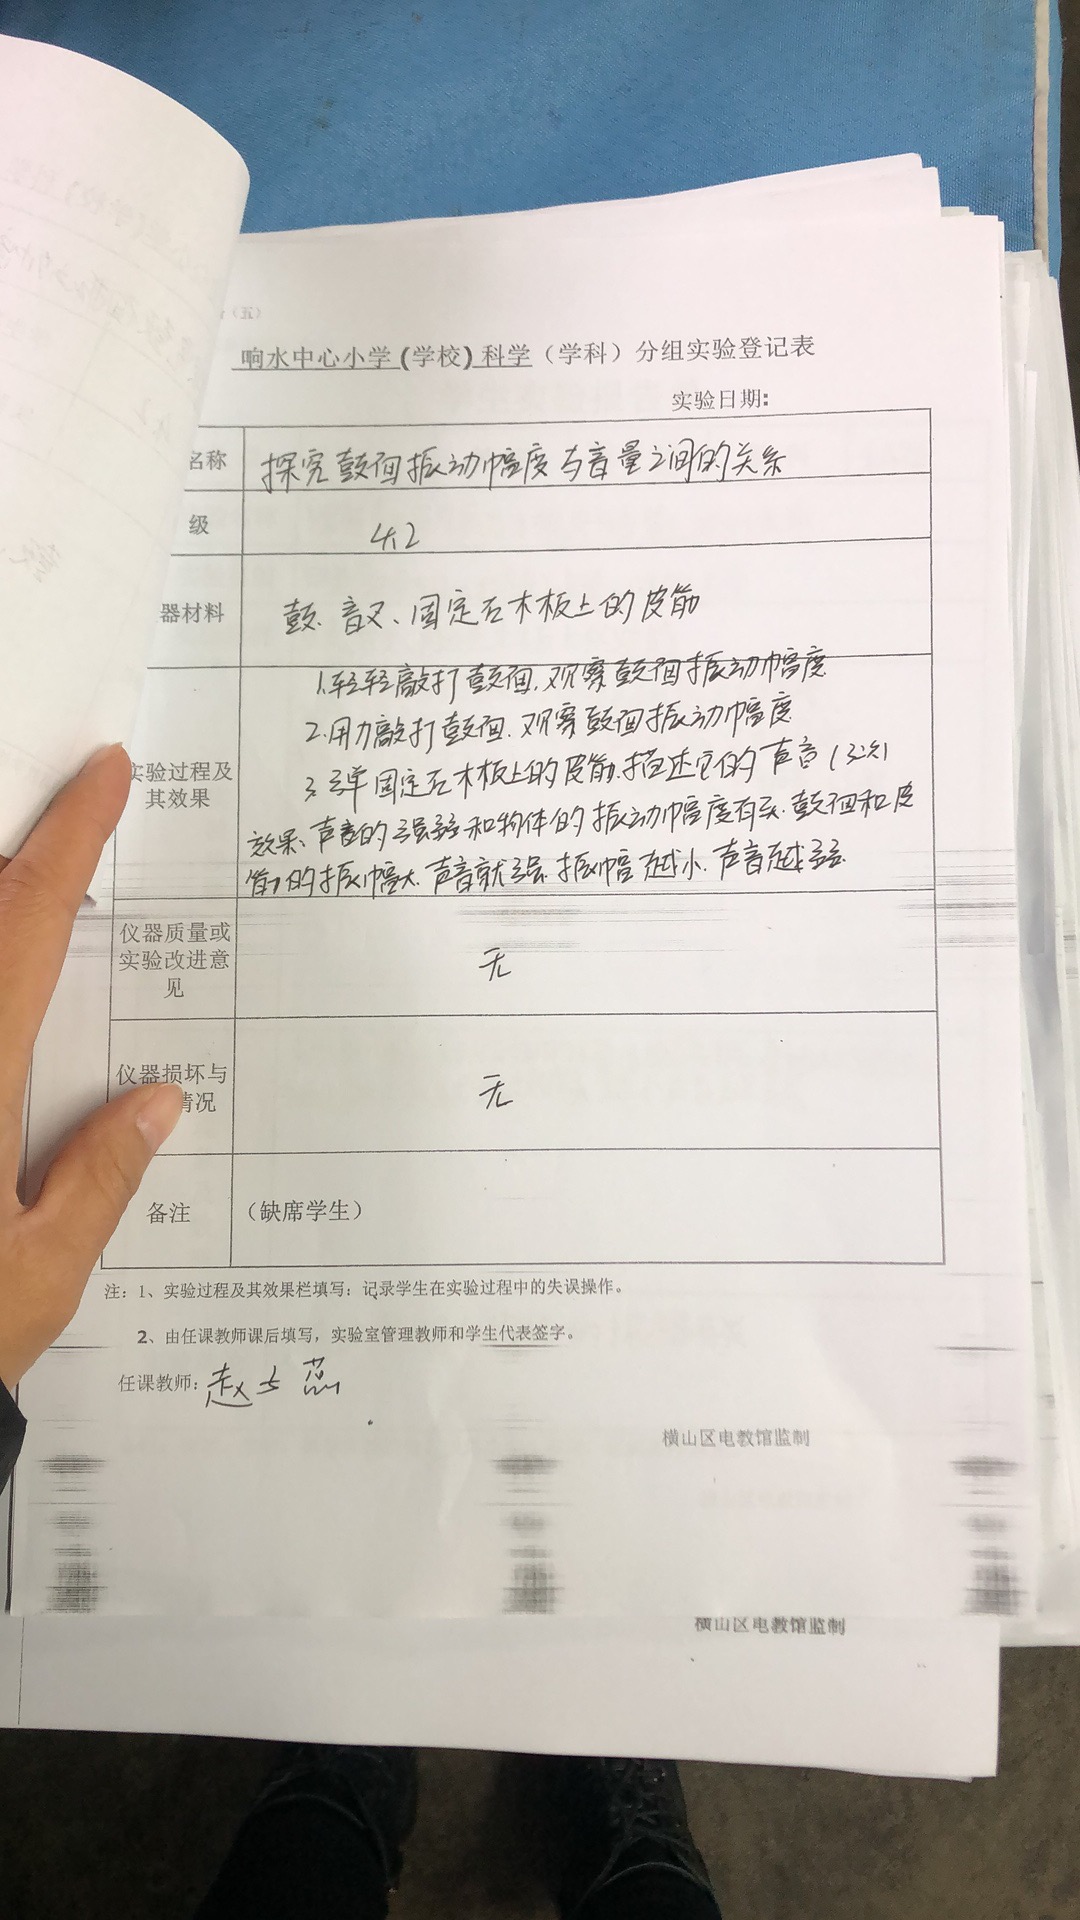 （五）
响水中心小学（学校）科学（学科）分组实验登记表
实验日期:
名称 探究鼓面振动幅度与音量之间的关系
级 4.2
器材料 鼓、音叉、固定在木板上的皮筋
1.轻轻敲打鼓面,观察鼓面振动幅度
2.用力敲打鼓面.观察鼓面振动幅度
实验过程及
其效果
3.弹固定在木板上的皮筋.描述它的声音(3次)
效果:声音的强弱和物体的振动幅度有关.鼓面和皮
筋的振幅大.声音就强.振幅越小.声音越弱.
仪器质量或
实验改进意
见
无
仪器损坏与
情况
无
备注 （缺席学生）
注：1、实验过程及其效果栏填写：记录学生在实验过程中的失误操作。
2、由任课教师课后填写，实验室管理教师和学生代表签字。
任课教师: 赵 蕊
横山区电教馆监制
横山区电教馆监制